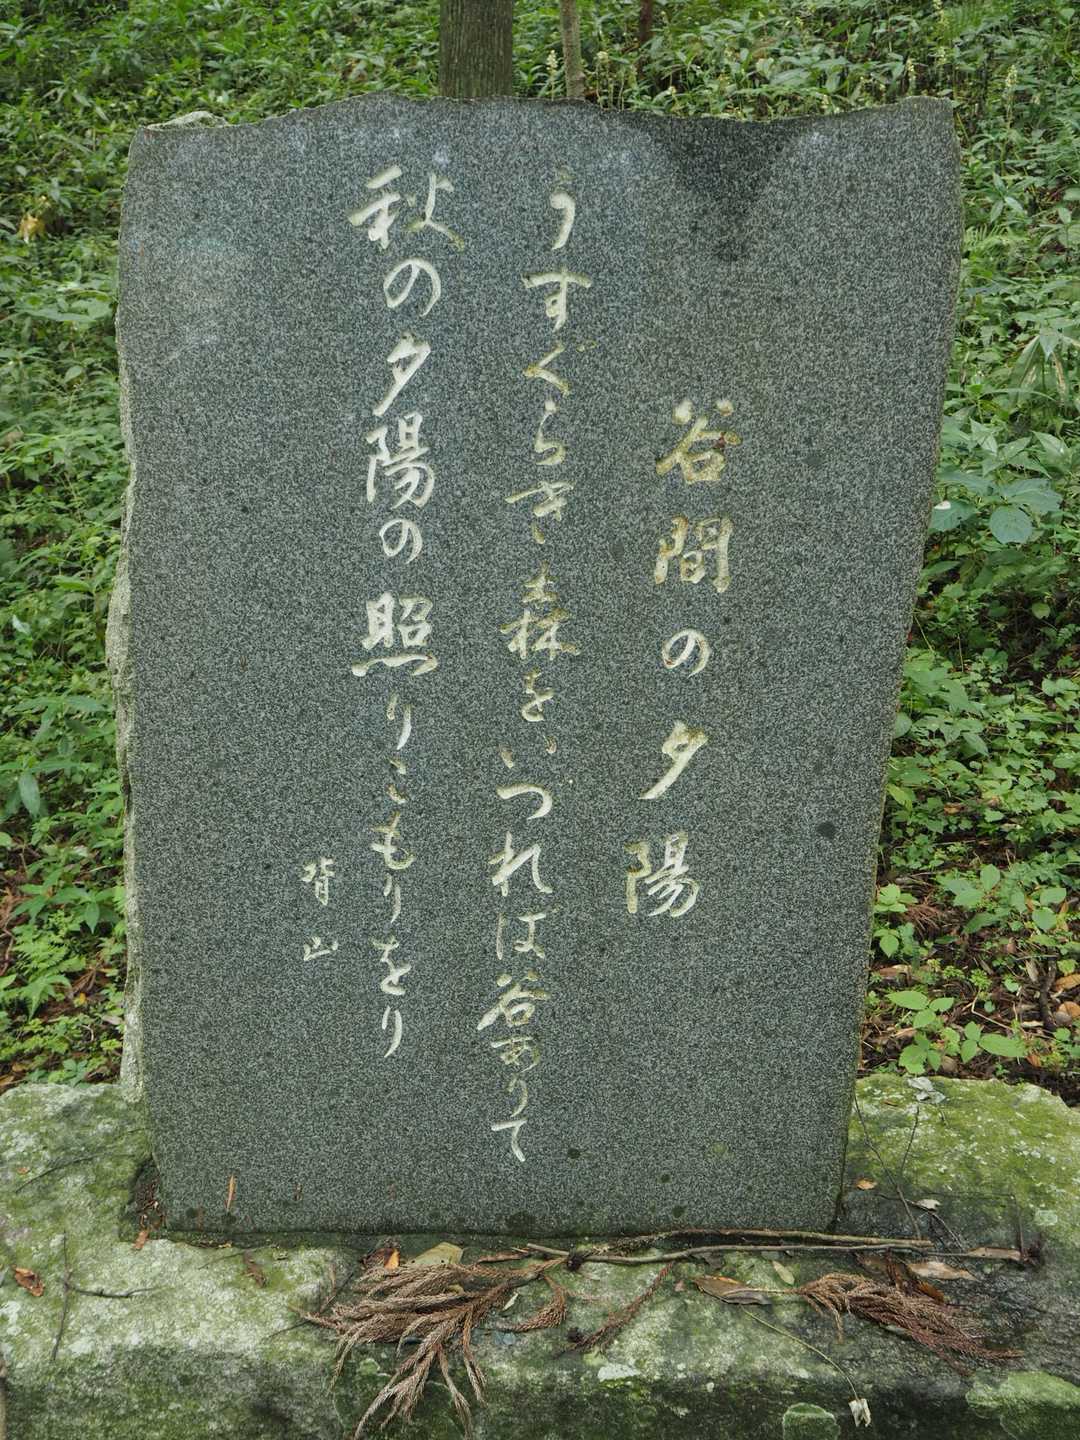 谷間の夕陽
うすぐらき森をいづれば谷ありて
秋の夕陽の照りこもりをり
背山